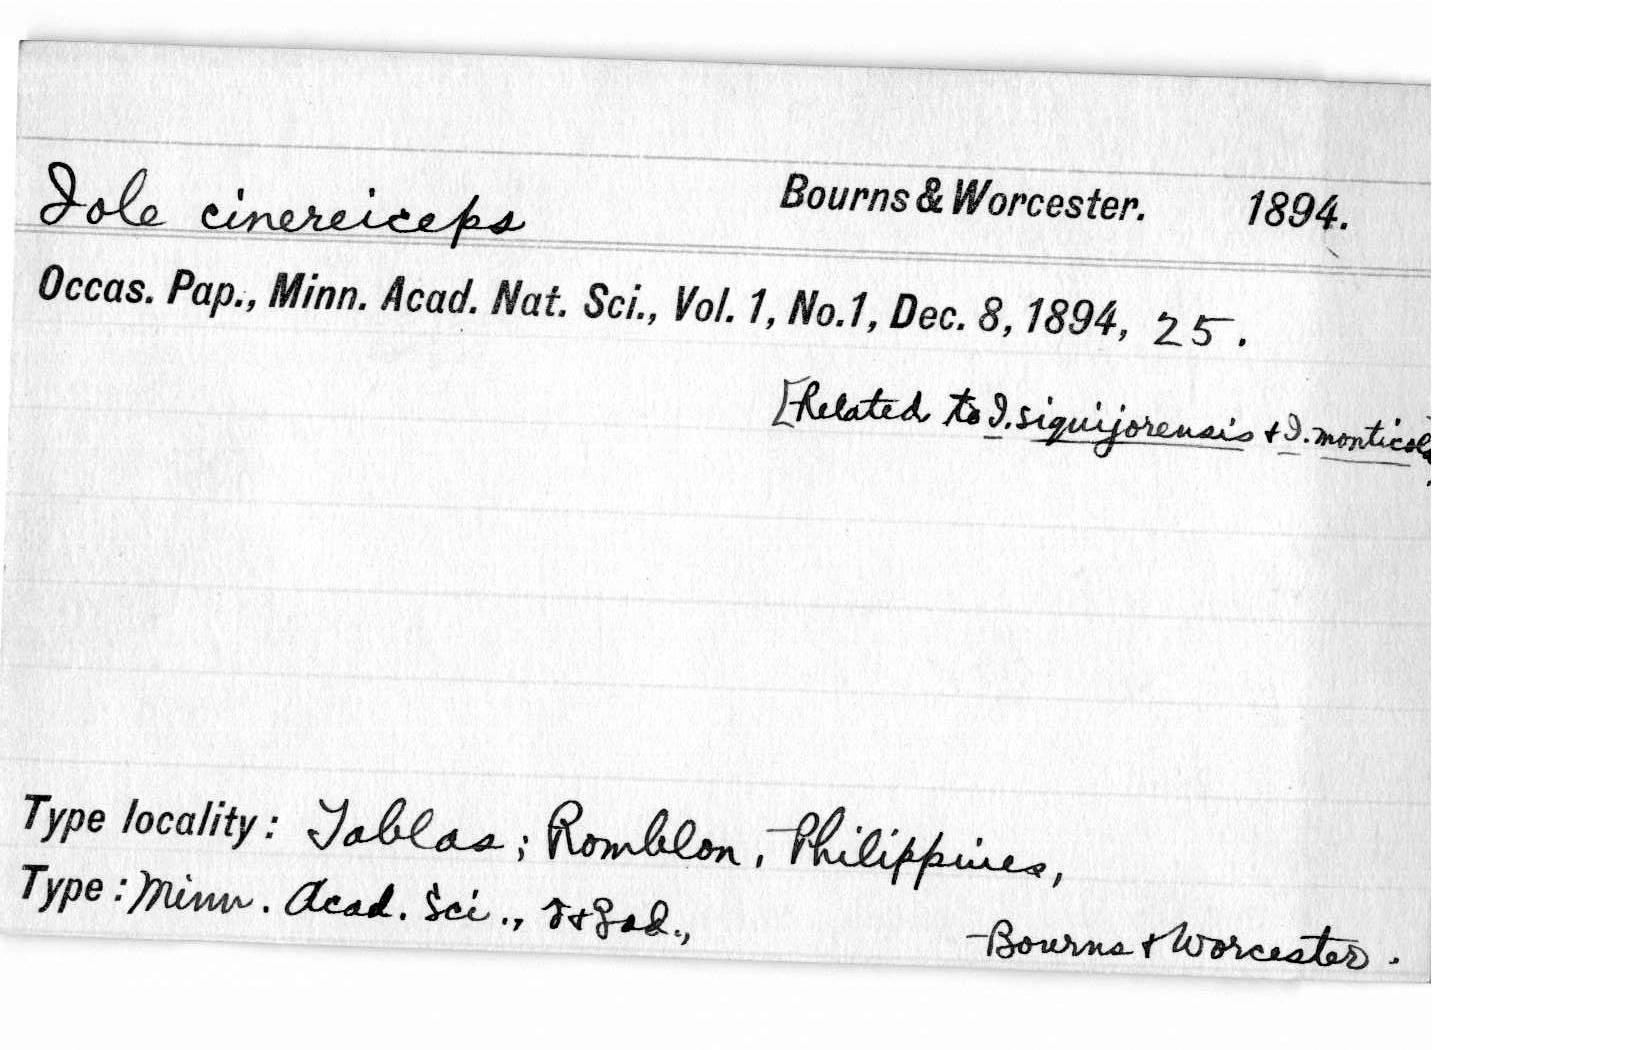 Iole cinereiceps Bourns & Worcester. 1894.
Occas. Pap., Minn. Acad. Nat. Sci., Vol. 1, No.1, Dec. 8, 1894, 25.
[Related to I. siquijorensis & I. monticola
Type locality: Tablas; Romblon, Philippines,
Type: Minn. Acad. Sci., ♂ & ♀ ad.,
Bourns & Worcester.